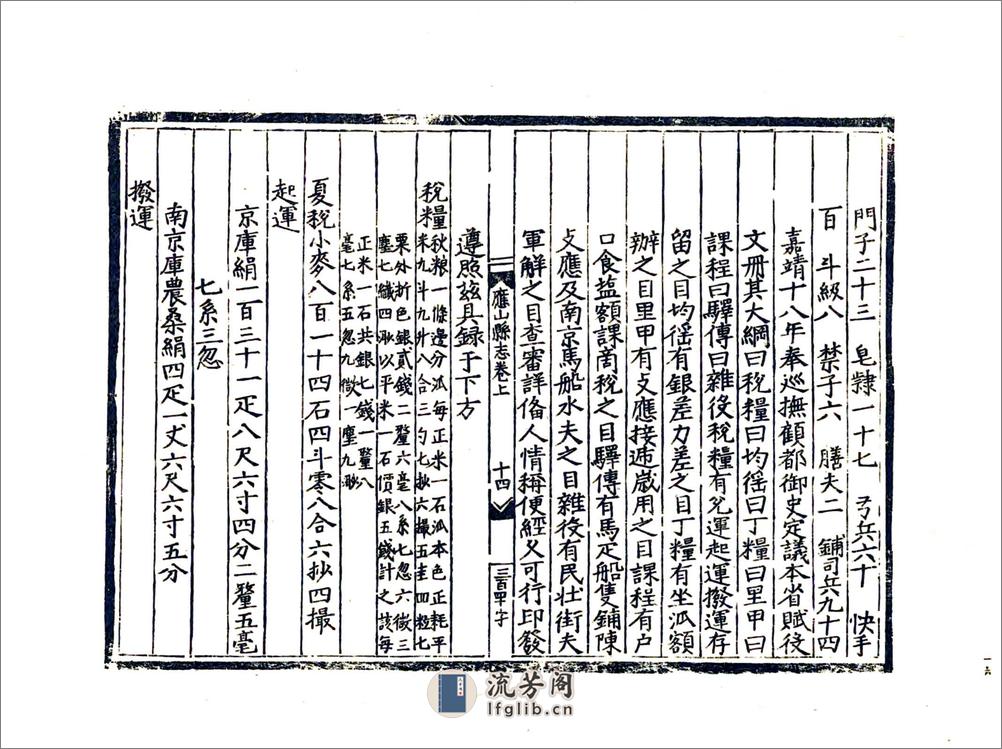 門子二十三　皂隸一十七　弓兵六十　快手
百　斗級八　禁子六　膳夫二　鋪司兵九十四
嘉靖十八年奉巡撫顧都御史定議本省賦役
文冊其大綱曰稅糧曰均徭曰丁糧曰里甲曰
課程曰驛傳曰雜役稅糧有兌運起運撥運存
留之目均徭有銀差力差之目丁糧有坐泒額
辦之目里甲有支應接逓歲用之目課程有户
口食塩額課商稅之目驛傳有馬疋船隻鋪陳
支應及南京馬船水夫之目雜役有民壮街夫
軍解之目查審詳俻人情稱便經久可行印發
應山縣志卷上　十四　三百四十字
遵照兹具録于下方
稅糧
秋粮一條邊分泒每正米一石泒本色正耗平
米九斗九升八合三勺七抄六撮五圭四粒七
粟外折色銀貳錢二釐六毫八系七忽六微三
塵七纖四渺以平米一石價銀五錢計之該每
正米一石共銀七錢一釐八
毫七系五忽九微一塵九渺
夏稅小麥八百一十四石四斗零八合六抄四撮
起運
京庫絹一百三十一疋八尺六寸四分二釐五毫
七系三忽
南京庫農桑絹四疋一丈六尺六寸五分
撥運
流芳阁
lfglib.cn